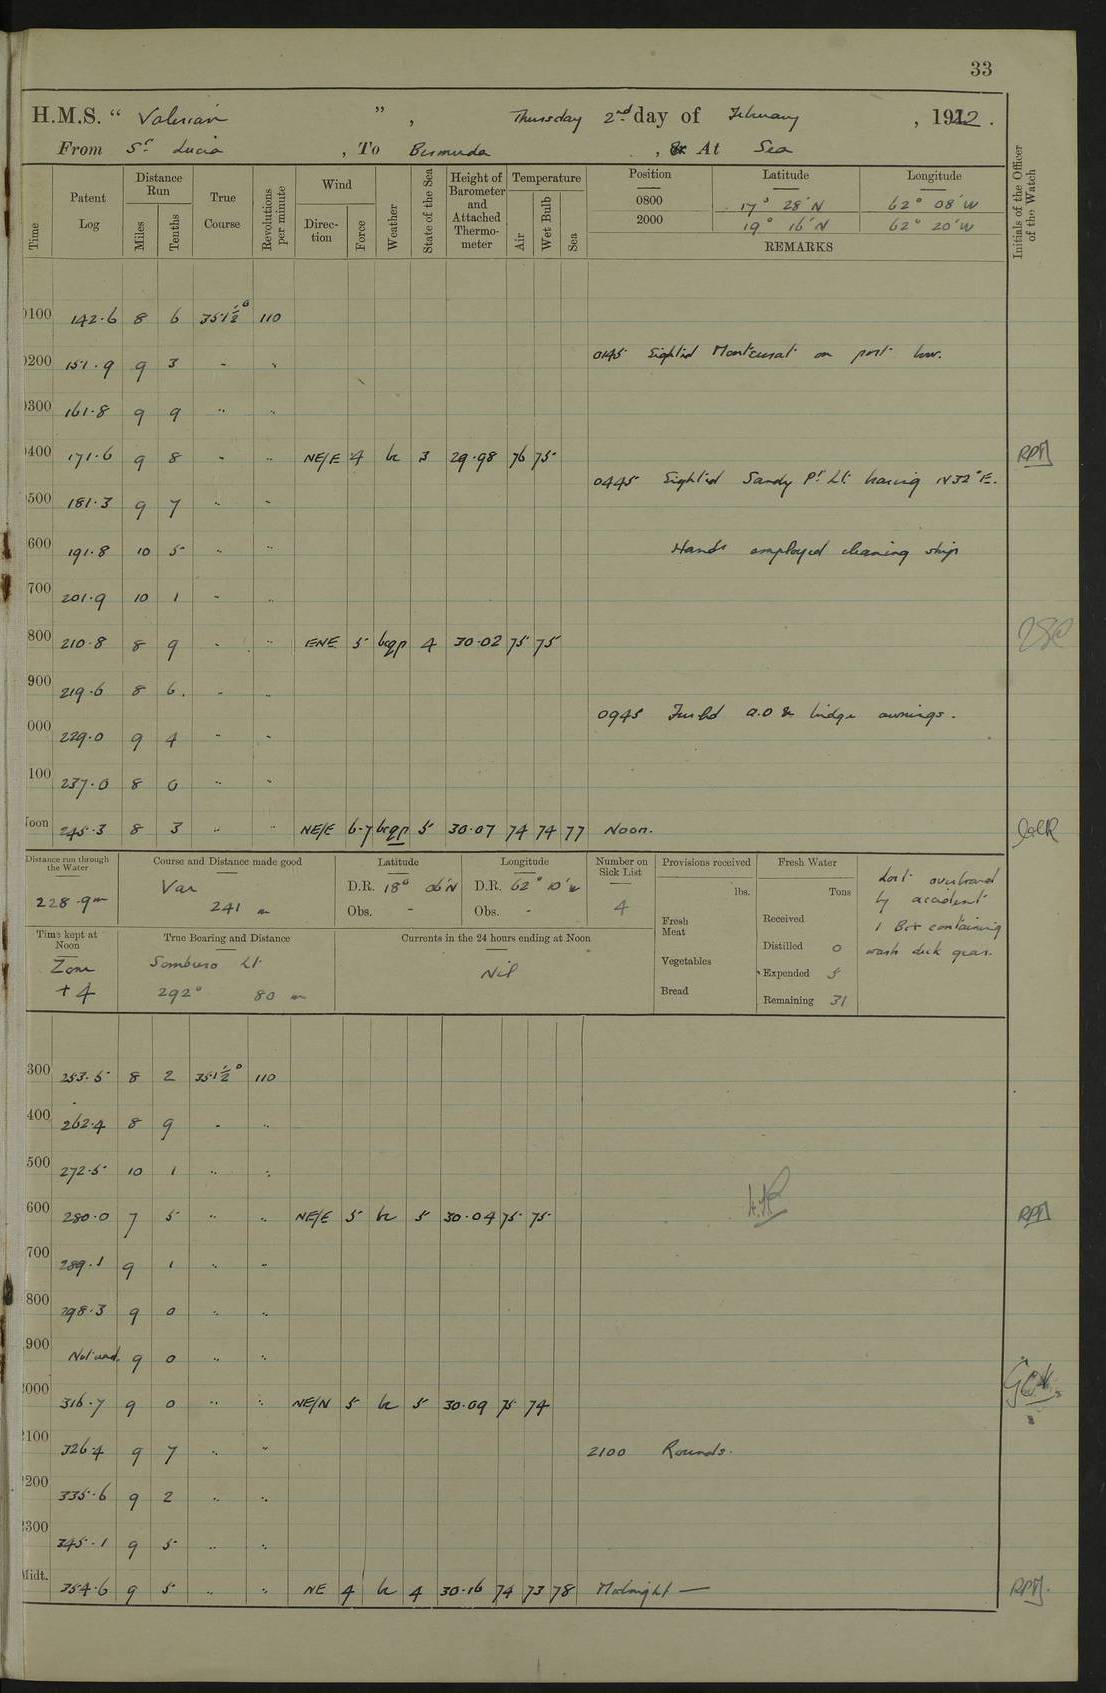 33
H.M.S. “ Valerian ” , Thursday 2nd day of February , 1922 .
From St Lucia , To Bermuda , or At Sea
Time
Patent Log
Distance Run
Miles
Tenths
True Course
Revolutions per minute
Wind
Direction
Force
Weather
State of the Sea
Height of Barometer and Attached Thermometer
Temperature
Air
Wet Bulb
Sea
Position Latitude Longitude
0800 17° 28′ N 62° 08′ W
2000 19° 16′ N 62° 20′ W
REMARKS
Initials of the Officer of the Watch
0100 142.6 8 6 351½° 110
0145 Sighted Montserrat on port bow.
0200 151.9 9 3 " "
0300 161.8 9 9 " "
0400 171.6 9 8 " " NE/E 4 bc 3 29.98 76 75
0445 Sighted Sandy Pt. Lt. bearing N32°E.
0500 181.3 9 7 " "
600 191.8 10 5 " " Hands employed cleaning ship
700 201.9 10 1 " "
800 210.8 8 9 " " ENE 5 bcqp 4 30.02 75 75
900 219.6 8 6. " "
0945 Furled Q.D & bridge awnings.
000 229.0 9 4 " "
100 237.0 8 0 " "
Noon 245.3 8 3 " " NE/E 6-7 bcqp 5 30.07 74 74 77 Noon.
Distance run through the Water
228.9m
Course and Distance made good
Var
241 m
Latitude
D.R. 18° 06′N
Obs. -
Longitude
D.R. 62° 10′W
Obs. -
Number on Sick List
4
Provisions received
lbs.
Fresh Meat
Vegetables
Bread
Fresh Water
Tons
Received
Distilled 0
Expended 5
Remaining 31
Lost overboard
by accident
1 Box containing
wash deck gear.
Time kept at Noon
Zone
+ 4
True Bearing and Distance
Sombrero Lt.
292° 80 m
Currents in the 24 hours ending at Noon
Nil
300 253.5 8 2 351½° 110
400 262.4 8 9 " "
500 272.5 10 1 " "
600 280.0 7 5 " " NE/E 5 bc 5 30.04 75 75
700 289.1 9 1 " "
800 298.3 9 0 " "
900 Not read. 9 0 " "
2000 316.7 9 0 " " NE/N 5 bc 5 30.09 75 74
2100 326.4 9 7 " " 2100 Rounds.
2200 335.6 9 2 " "
2300 345.1 9 5 " "
Midt. 354.6 9 5 " " NE 4 bc 4 30.16 74 73 78 Midnight —